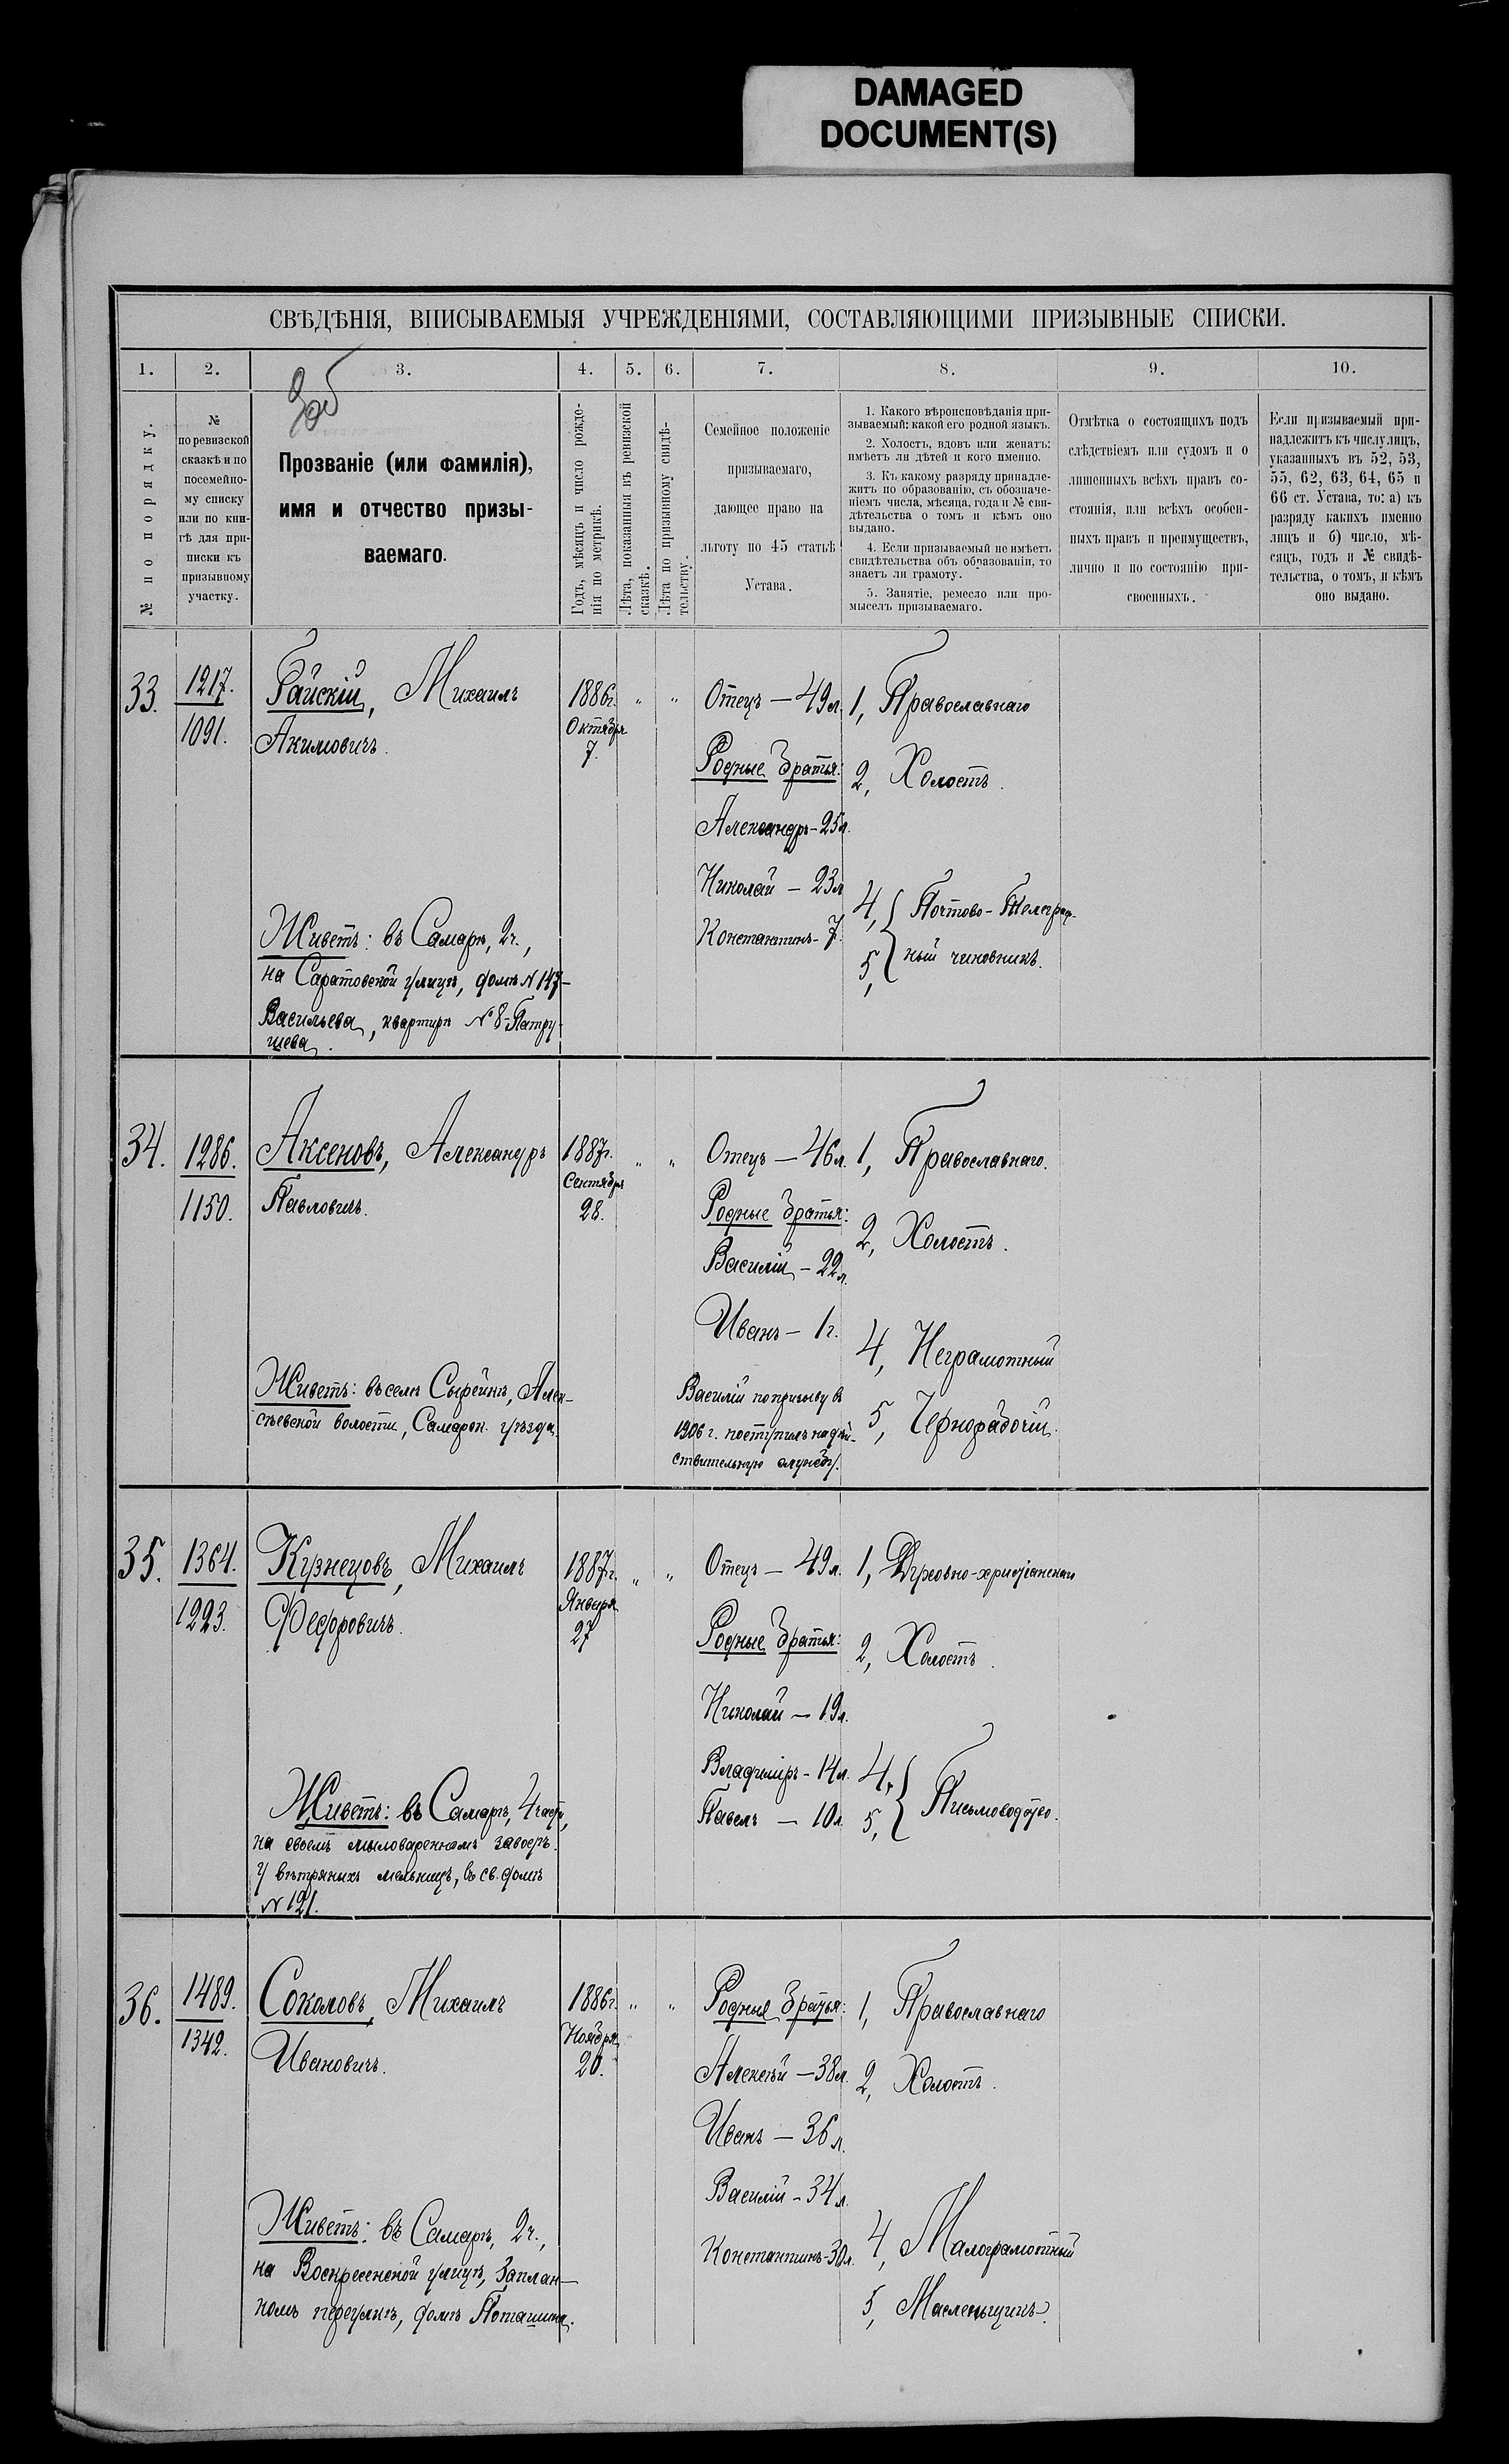 DAMAGED
DOCUMENT(S)
СВѢДѢНІЯ, ВПИСЫВАЕМЫЯ УЧРЕЖДЕНІЯМИ, СОСТАВЛЯЮЩИМИ ПРИЗЫВНЫЕ СПИСКИ.
1. 2. 3. 4. 5. 6. 7. 8. 9. 10.
№ по порядку.
№
по ревизской
сказкѣ и по
посемейно-
му списку
или по кни-
гѣ для при-
писки къ
призывному
участку.
Прозваніе (или фамилія),
имя и отчество призы-
ваемаго.
Годъ, мѣсяцъ и число рожде-
нія по метрикѣ.
Лѣта, показанныя въ ревизской
сказкѣ.
Лѣта по призывному свидѣ-
тельству.
Семейное положеніе
призываемаго,
дающее право на
льготу по 45 статьѣ
Устава.
1. Какого вѣроисповѣданія при-
зываемый; какой его родной языкъ.
2. Холостъ, вдовъ или женатъ;
имѣетъ ли дѣтей и кого именно.
3. Къ какому разряду принадле-
житъ по образованію, съ обозначе-
ніемъ числа, мѣсяца, года и № сви-
дѣтельства о томъ и кѣмъ оно
выдано.
4. Если призываемый не имѣетъ
свидѣтельства объ образованіи, то
знаетъ ли грамоту.
5. Занятіе, ремесло или про-
мыселъ призываемаго.
Отмѣтка о состоящихъ подъ
слѣдствіемъ или судомъ и о
лишенныхъ всѣхъ правъ со-
стоянія, или всѣхъ особен-
ныхъ правъ и преимуществъ,
лично и по состоянію при-
своенныхъ.
Если призываемый при-
надлежитъ къ числу лицъ,
указанныхъ въ 52, 53,
55, 62, 63, 64, 65 и
66 ст. Устава, то: а) къ
разряду какихъ именно
лицъ и б) число, мѣ-
сяцъ, годъ и № свидѣ-
тельства, о томъ, и кѣмъ
оно выдано.
33.
1217.
1091.
Райскій, Михаилъ
Акимовичъ.
Живетъ: въ Самарѣ, 2ч.,
на Саратовской улицѣ, домъ № 147-
Васильева, квартира № 8-Патру-
шева.
1886г.
Октября
7.
" "
Отецъ — 49л.
Родные братья:
Александръ - 25л.
Николай — 23л
Константинъ - 7.
1, Православнаго
2, Холостъ.
4, Почтово-Телеграф-
5, ный чиновникъ.
34.
1286.
1150.
Аксеновъ, Александръ
Павловичъ.
Живетъ: въ селѣ Сырейкѣ, Алек-
сѣевской волости, Самарск. уѣзда.
1887г.
Сентября
28.
" "
Отецъ — 46л.
Родные братья:
Василій - 22л.
Иванъ — 1г.
Василій по призыву въ
1906 г. поступилъ на дѣй-
ствительную службу.
1, Православнаго.
2, Холостъ.
4, Неграмотный
5, Чернорабочій.
35.
1364.
1223.
Кузнецовъ, Михаилъ
Федоровичъ.
Живетъ: въ Самарѣ, 4 части,
на своемъ мыловаренномъ заводѣ
у вѣтряныхъ мельницъ, въ св. домѣ
№ 121.
1887г.
Января
27
" "
Отецъ — 49л.
Родные братья:
Николай — 19л.
Владиміръ - 14л.
Павелъ — 10л.
1, Духовно-христіанскаго
2, Холостъ.
4, Письмоводство.
5,
36.
1489.
1342.
Соколовъ, Михаилъ
Ивановичъ.
Живетъ: въ Самарѣ, 2ч.,
на Воскресенской улицѣ, Заплан-
номъ переулкѣ, домъ Поташина.
1886г.
Ноября
20.
" "
Родные братья:
Алексѣй — 38л.
Иванъ — 36л.
Василій - 34л.
Константинъ - 30л.
1, Православнаго
2, Холостъ.
4, Малограмотный
5, Масленьщикъ.